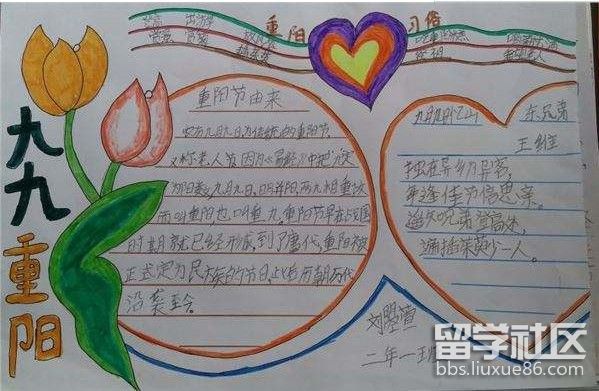 重阳 习俗
九九重阳
重阳节由来
农历九月九日为传统的重阳节
又称老人节因为《易经》中把六定
为阳爻,九月九日,日月并阳,两九相重故
而叫重阳也叫重九重阳节早在战国
时期就已经形成,到了唐代,重阳
正式定为民间的节日,此后历朝历代
沿袭至今。
东兄弟
王维
独在异乡为异客,
每逢佳节倍思亲。
遥知兄弟登高处,
遍插茱萸少一人。
二年一班
留学社区
bbs.liuxue86.com